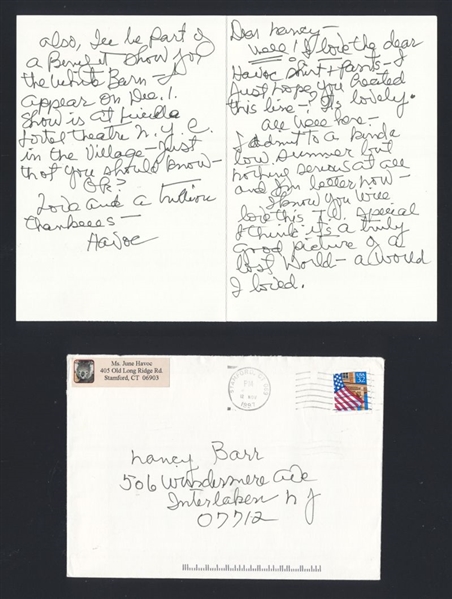 Dear Nancy—
Well! I love the dear
Havoc shirt + pants—
Just hope you created
this line—! Its lovely.
all well here—
I admit to a kinda
low summer but
nothing serious at all
and Im better now—
I know you will
love this T.V. special
I think its a truly
Good picture of a
lost world— a world
I loved.
also, I'll be part of
a Benefit show for
the White Barn—I
appear on Dec. 1.
Show is at Lucille
Lortel theatre N.Y.C.
in the Village—Just
tho't you should know—
OK?
Love and a trillion
thankeees—
Havoc
Ms. June Havoc
405 Old Long Ridge Rd.
Stamford, CT 06903
STAMFORD, CT
PM
NOV
1997
USA 32
Nancy Barr
506 Windermere Ave
Interlaken NJ
07712